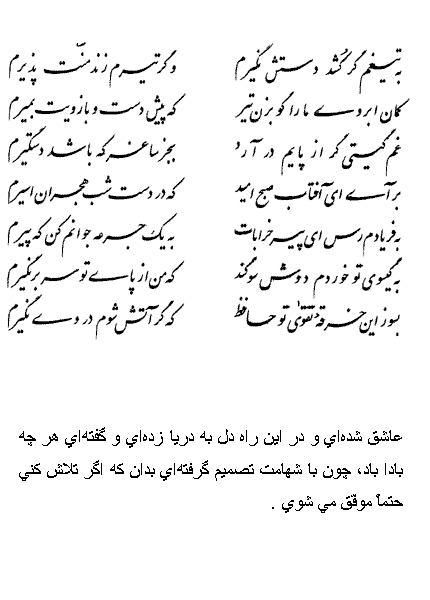 به تیغم گر کشد دستش نگیرم وگر تیرم زند منت پذیرم
کمان ابروی ما را گو بزن تیر که پیش دست و بازویت بمیرم
غم گیتی گر از پایم در آرد بجز ساغر که باشد دستگیرم
برآی ای آفتاب صبح امید که در دست شب هجران اسیرم
به فریادم رس ای پیر خرابات به یک جرعه جوانم کن که پیرم
به گیسوی تو خوردم دوش سوگند که من از پای تو سر برنگیرم
بسوز این خرقه تقوی تو حافظ که گر آتش شوم در وی نگیرم
عاشق شده‌اي و در اين راه دل به دريا زده‌اي و گفته‌اي هر چه
بادا باد، چون با شهامت تصميم گرفته‌اي بدان كه اگر تلاش كني
حتماً موفّق مي شوي .